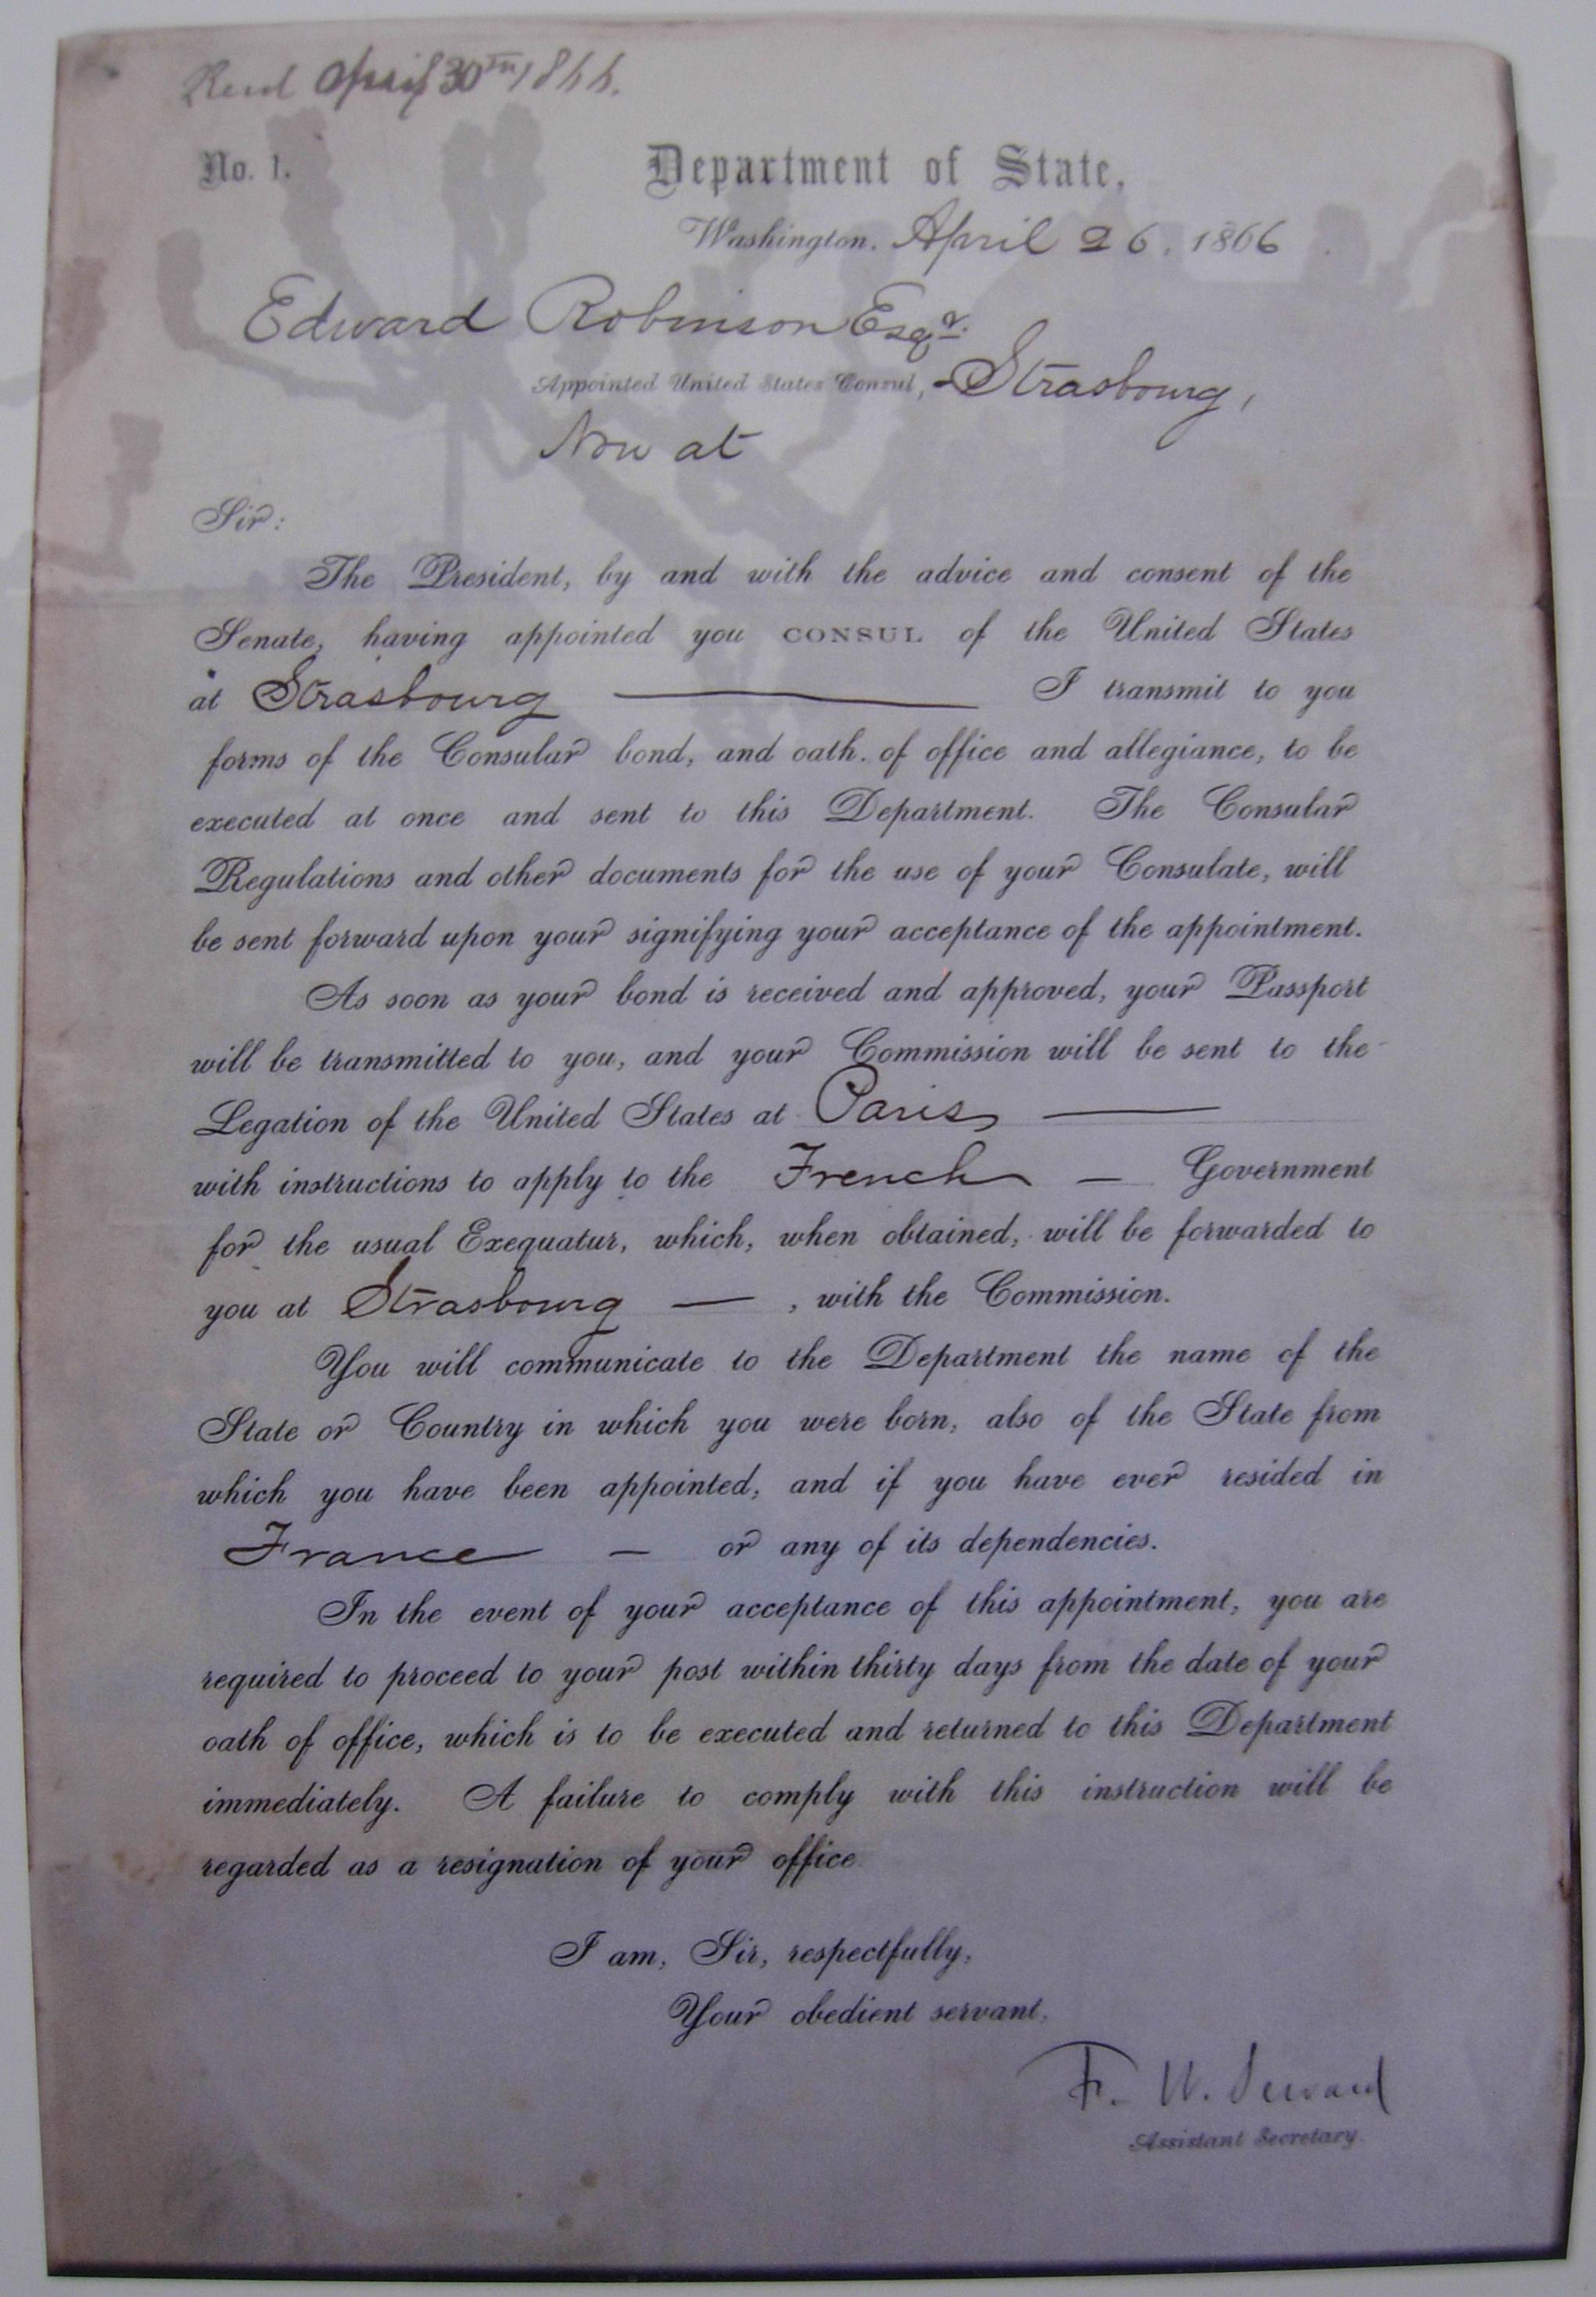 Recd April 30th 1866.
No. 1.
Department of State,
Washington, April 26, 1866
Edward Robinson Esqr.
Appointed United States Consul, Strasbourg,
Now at
Sir:
The President, by and with the advice and consent of the
Senate, having appointed you CONSUL of the United States
at Strasbourg ——— I transmit to you
forms of the Consular bond, and oath of office and allegiance, to be
executed at once and sent to this Department. The Consular
Regulations and other documents for the use of your Consulate, will
be sent forward upon your signifying your acceptance of the appointment.
As soon as your bond is received and approved, your Passport
will be transmitted to you, and your Commission will be sent to the
Legation of the United States at Paris ———
with instructions to apply to the French — Government
for the usual Exequatur, which, when obtained, will be forwarded to
you at Strasbourg —, with the Commission.
You will communicate to the Department the name of the
State or Country in which you were born, also of the State from
which you have been appointed, and if you have ever resided in
France — or any of its dependencies.
In the event of your acceptance of this appointment, you are
required to proceed to your post within thirty days from the date of your
oath of office, which is to be executed and returned to this Department
immediately. A failure to comply with this instruction will be
regarded as a resignation of your office
I am, Sir, respectfully,
Your obedient servant,
F. W. Seward
Assistant Secretary.